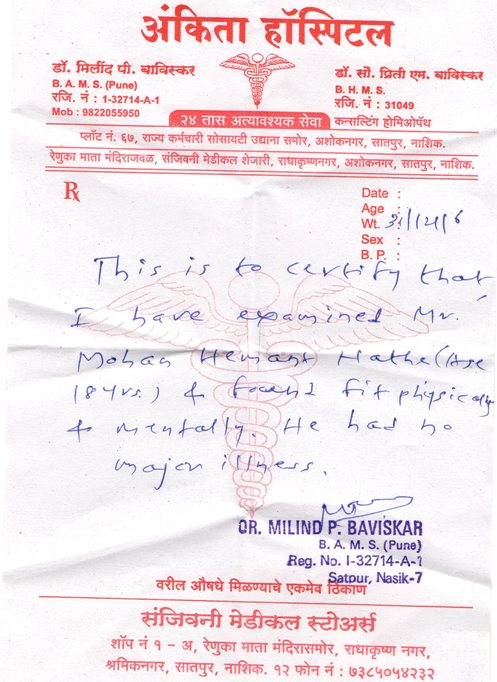 अंकिता हॉस्पिटल
डॉ. मिलींद पी. बाविस्कर
B. A. M. S. (Pune)
रजि. नं : 1-32714-A-1
Mob : 9822055950
डॉ. सौ. प्रिती एम. बाविस्कर
B. H. M. S.
रजि. नं : 31049
२४ तास अत्यावश्यक सेवा कन्सल्टिंग होमिओपॅथ
प्लॉट नं. ६७, राज्य कर्मचारी सोसायटी उद्याना समोर, अशोकनगर, सातपुर, नाशिक.
रेणुका माता मंदिराजवळ, संजिवनी मेडीकल शेजारी, राधाकृष्णनगर, अशोकनगर, सातपुर, नाशिक.
Rx
Date :
Age :
Wt. :
Sex :
B. P. :
This is to certify that
I have examined Mr.
Mohan Hemant Hathe (Age
18 yrs.) & found fit physically
& mentally. He had no
major illness.
DR. MILIND P. BAVISKAR
B. A. M. S. (Pune)
Reg. No. I-32714-A-1
Satpur, Nasik-7
वरील औषधे मिळण्याचे एकमेव ठिकाण
संजिवनी मेडीकल स्टोअर्स
शॉप नं १ - अ, रेणुका माता मंदिरासमोर, राधाकृष्ण नगर,
श्रमिकनगर, सातपुर, नाशिक. १२ फोन नं : ७३८५०५४२३२